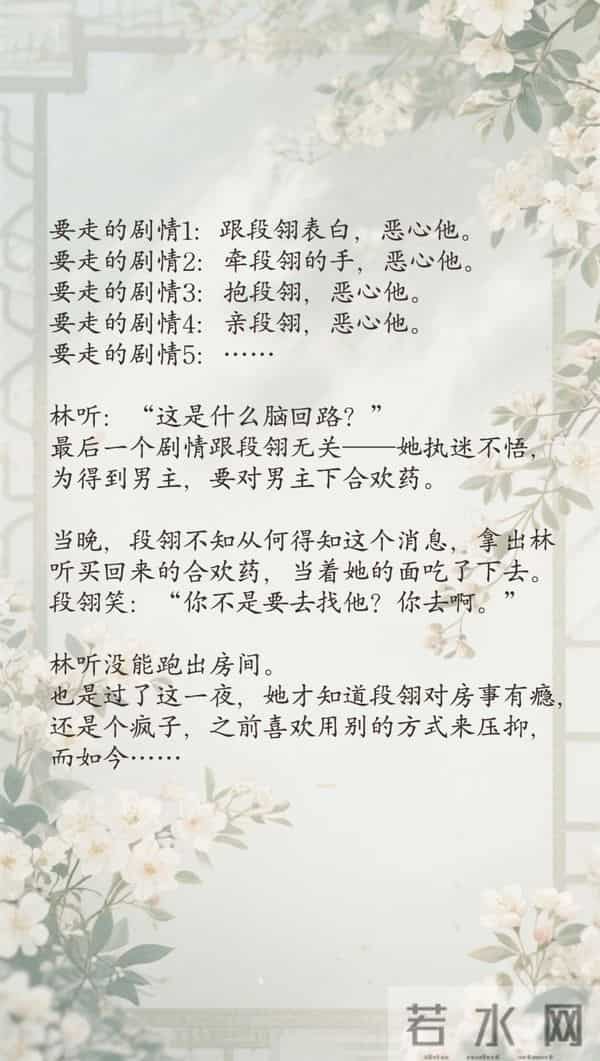 要走的剧情1：跟段翎表白，恶心他。
要走的剧情2：牵段翎的手，恶心他。
要走的剧情3：抱段翎，恶心他。
要走的剧情4：亲段翎，恶心他。
要走的剧情5：……
林听：“这是什么脑回路？”
最后一个剧情跟段翎无关——她执迷不悟，
为得到男主，要对男主下合欢药。
当晚，段翎不知从何得知这个消息，拿出林
听买回来的合欢药，当着她的面吃了下去。
段翎笑：“你不是要去找他？你去啊。”
林听没能跑出房间。
也是过了这一夜，她才知道段翎对房事有瘾，
还是个疯子，之前喜欢用别的方式来压抑，
而如今……
若水网